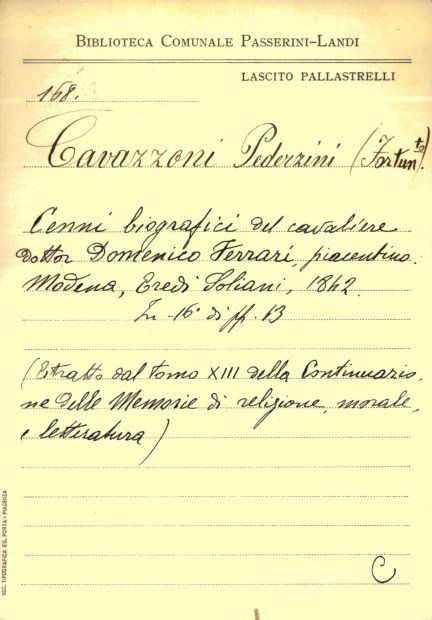 BIBLIOTECA COMUNALE PASSERINI-LANDI
LASCITO PALLASTRELLI
168.
Cavazzoni Pederzini (Fortun.to)
Cenni biografici del cavaliere
dottor Domenico Ferrari, piacentino.
Modena, Eredi Soliani, 1842.
In-16° di pp. 13
(Estratto dal tomo XIII della Continuazio-
ne delle Memorie di religione, morale,
e letteratura)
C
SOC. TIPOGRAFICA ED. PORTA - PIACENZA